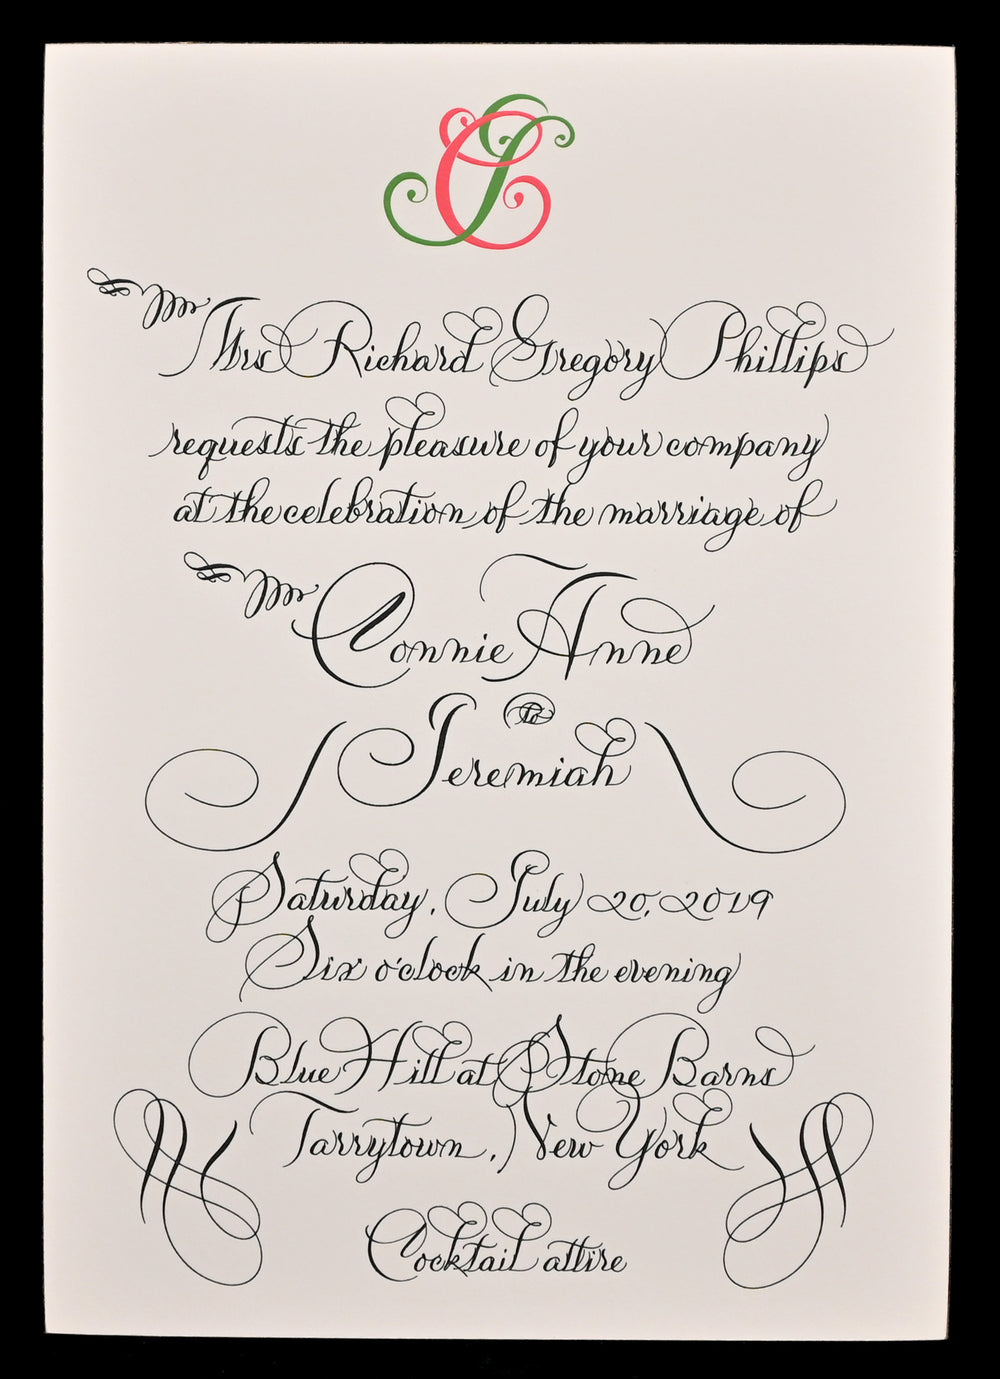 CJ
Mrs Richard Gregory Phillips
requests the pleasure of your company
at the celebration of the marriage of
Connie Anne
to
Jeremiah
Saturday, July 20, 2019
Six o'clock in the evening
Blue Hill at Stone Barns
Tarrytown, New York
Cocktail attire